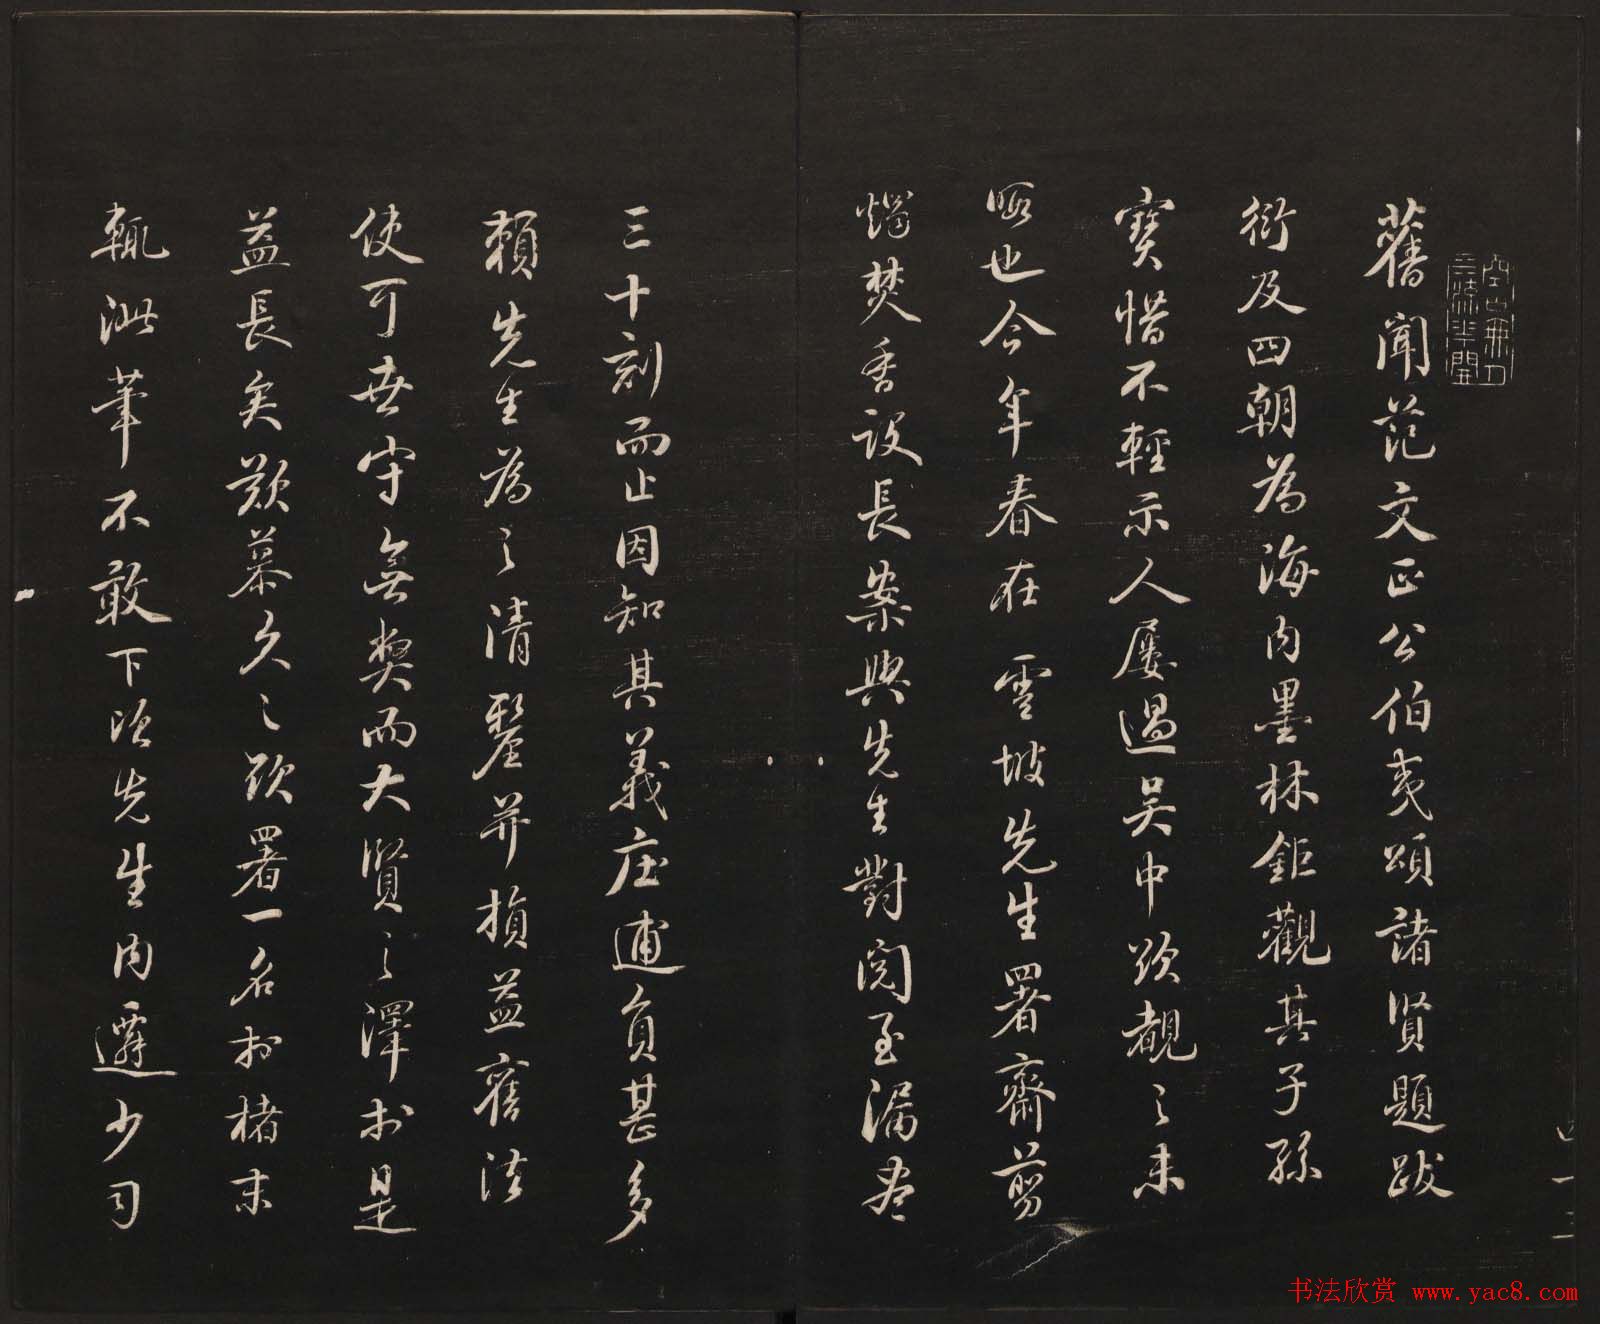 舊聞范文正公伯夷頌諸賢題跋
銜及四朝為海內墨林鉅觀其子孫
寶惜不輕示人屢過吳中欲覩之未
暇也今年春在雲坡先生署齋剪
燭焚香設長案與先生對閱至漏盡
三十刻而止因知其義庄逋負甚多
賴先生為之清釐并損益舊法
使可世守無獘而大賢之澤於是
益長矣歎慕久之欲署一名於楮末
輒泚筆不敢下頃先生內遷少司
书法欣赏 www.yac8.com